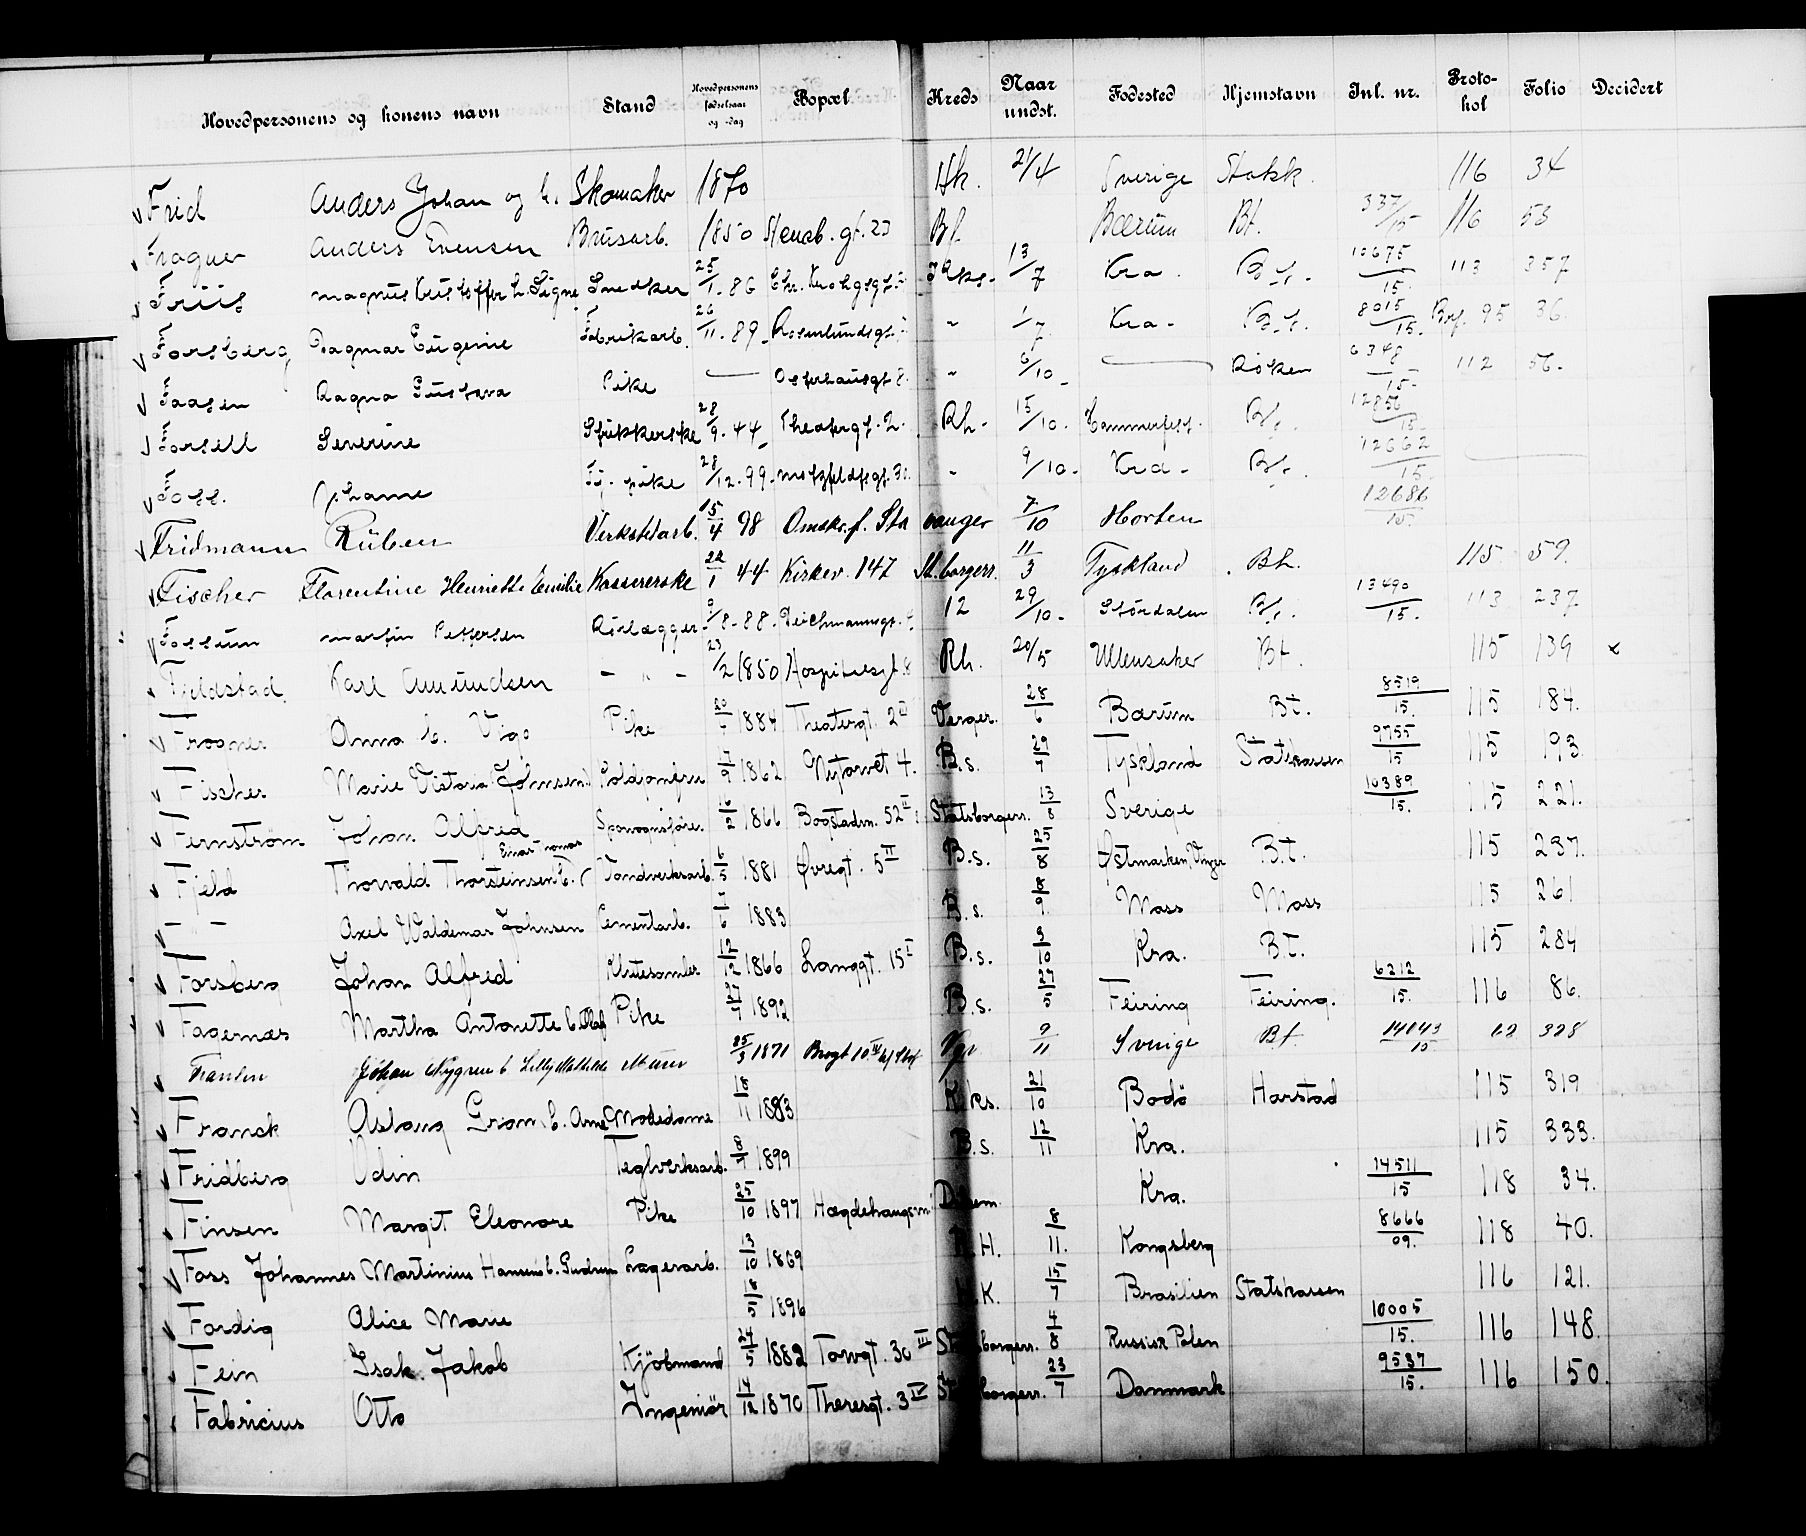 Hovedpersonens og konens navn Stand Hovedpersonens fødselsaar og -dag Bopæl Kreds Naar undst. Fødested Hjemstavn Inl. nr. Proto-kol Folio Decidert
Frid Anders Johan og h. Skomaker 1870 Hk. 21/4 Sverige Stokk. 116 34
Frogner Anders Evensen Brusarb. 1850 Stensb. gt. 23 Bf. Bærum Bt. 337/15 116 53
Friis Magnus Kristoffer h. Signe Snedker 25/1 86 Chr. Krohgsgt. 13/7 Kra. B.t. 10675/15. 113 357
Forsberg Dagmar Eugenie Fabrikarb. 26/11. 89. Rosenlundsgt. " 1/7 Kra. B.t. 8015/15. 95 36.
Faasen Ragna Gustava Pike — Osterhausgt. 8. " 6/10. Røken 6348/15. 112 56.
Forsell Severine Strikkerske 28/9. 44. Theatergt. 2. Rh. 15/10. Hammerfest. B.t. 12856/15.
Foss. Johanne Fj. pike 28/12. 99. Motzfeldtsgt. " 9/10. Kra. B.t. 12662/15.
Fridmann Rüben Verkstedarb. 15/4 98 Omskr. f. Stavanger 7/10 Horten 12686/15.
Fischer Florentine Henriette Emilie Kassererske 22/1 44 Kirkev. 147 St.borgerr. 11/3 Tyskland Bt. 115. 59.
Fossum Martin Pettersen Rørlægger 9/8. 88. Deichmannsgt. 12 29/10. Stördalen B.t. 13490/15. 113 237
Fjeldstad. Karl Amundsen - " - 23/2 1850 Hospitalsgt. 8 Rh. 20/5 Ullensaker Bt. 115 139 x
Frogner Anna C. Vigo Pike 1884 Theatergt. 2 II Verger. 28/6 Bærum Bt. 8519/15. 115 184.
Fischer Marie Victoria (Johnsen) 17/9 1862 Nytorvet 4. B.s. 29/7 Tyskland Statskassen 9755/15 115 193.
Fernström Johan Alfred 16/2 1866 Bogstadsv. 52 II Statsborgerr. 13/8 Sverige 10389/15. 115 221.
Einar
Fjeld Thorvald Thorsteinsen Vandverksarb. 6/5 1881 Øvregt. 5 II B.s. 25/8 Østmarken, B.t. 115 237.
- - Axel Waldemar Johnsen Cementarb. 1883 B.s. 8/9 Moss Moss 115 261
Forsberg Johan Alfred Klutesamler 12/12 1866 Langgt. 15 I B.s. 9/10 Kra. B.t. 115 284
Fagernæs Martha Antonette b. Olaf Pike 27/7 1892 B.s. 27/5 Feiring Feiring. 6212/15. 116 86.
Johan Nygren h. Lilly Mathilde Murer 25/3 1871 9/11 Sverige Bt. 14043/15 328
Franck Aslaug Gran b. Arne Modedame 18/11 1883 K.ks. 21/10 Bodö Harstad 115 319
Fridberg Odin Teglverksarb. 8/7 1899 B.s. 12/11 Kra. 115 333.
Finsen Margit Eleonore Pike 25/10 1897 Hægdehaugsv. Kra. 14511/15 118 34.
Foss Johannes Martinius Hansen h. Gudrun Lagerarb. 13/10 1869 H. 8/11. Kongsberg 8666/09. 118 40.
Fordig Alice Marie 18/5 1896 K. 15/7 Brasilien Statskassen 116 121.
Fein Isak Jakob Kjöbmand 24/5 1882 Torvgt. 30 III Statsborgerr. 4/8 Russisk Polen 10005/15. 116 148.
Fabricius Otto Ingeniör 14/12 1870 Theresgt. 3 IV Statsborgerr. 23/7 Danmark 9537/15. 116 150.